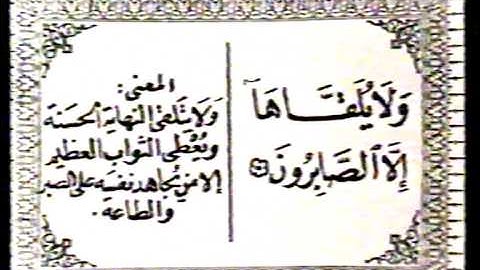 وَلَا يُلَقَّاهَآ
إِلَّا ٱلصَّابِرُونَ
المعنى:
وَلَا يتلقى النهاية الحسنة
ويُعْطى الثواب العظيم
إلا من يُجاهد نفسه على الصبر
والطاعة.